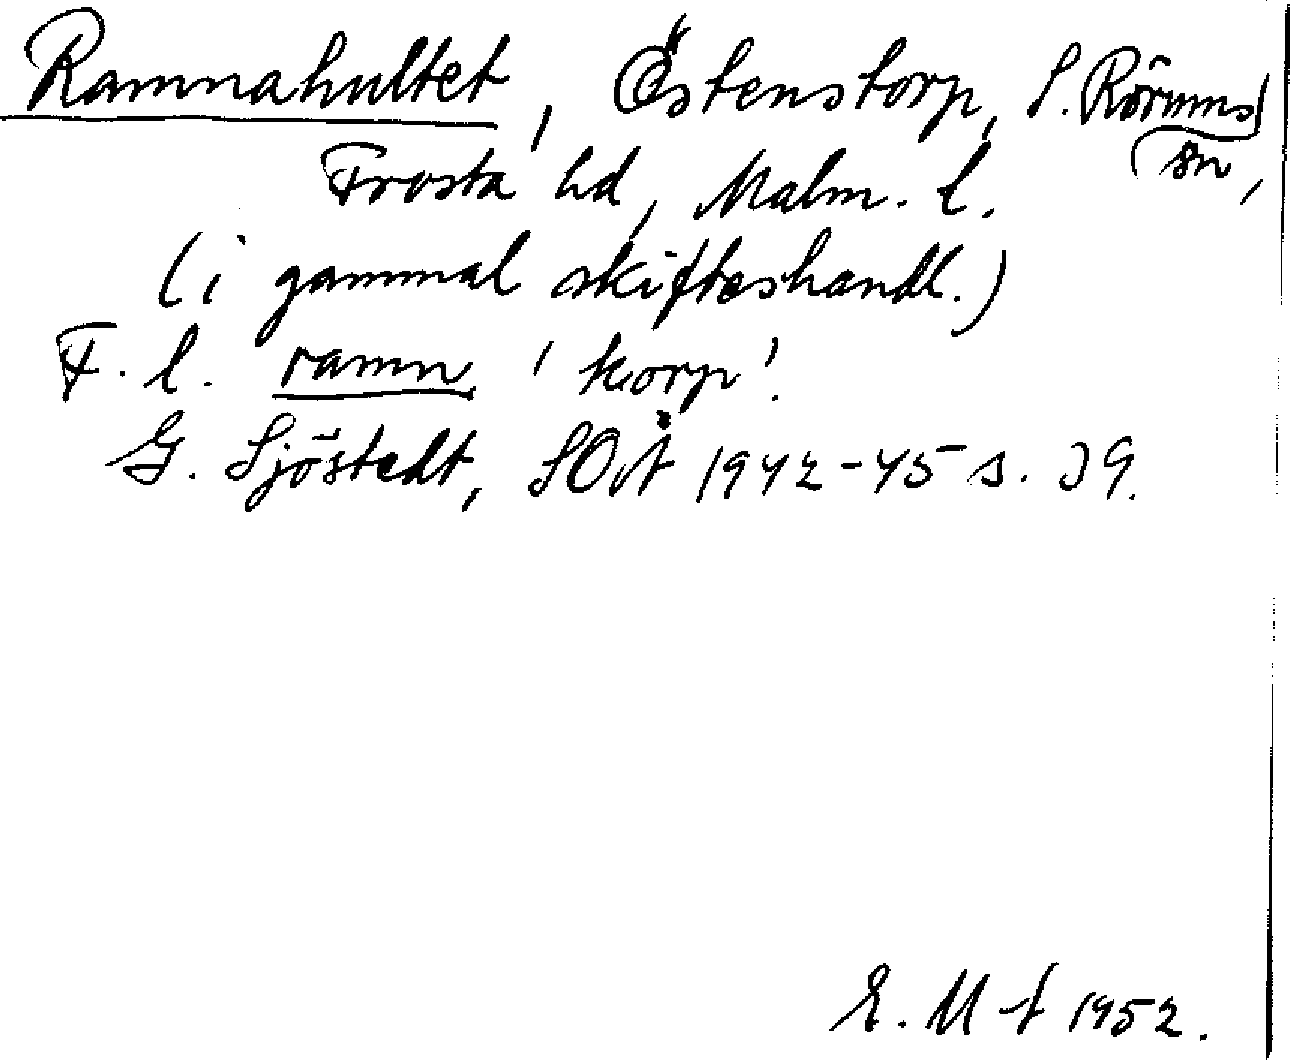 Ramnahultet, Östenstorp, S. Rörums
sn,
Frosta hd, Malm. l.
(i gammal skifteshandl.)
F. l. ramn 'korp'.
G. Sjöstedt, SOÅ 1942-45 s. 39.
E. M-t 1952.